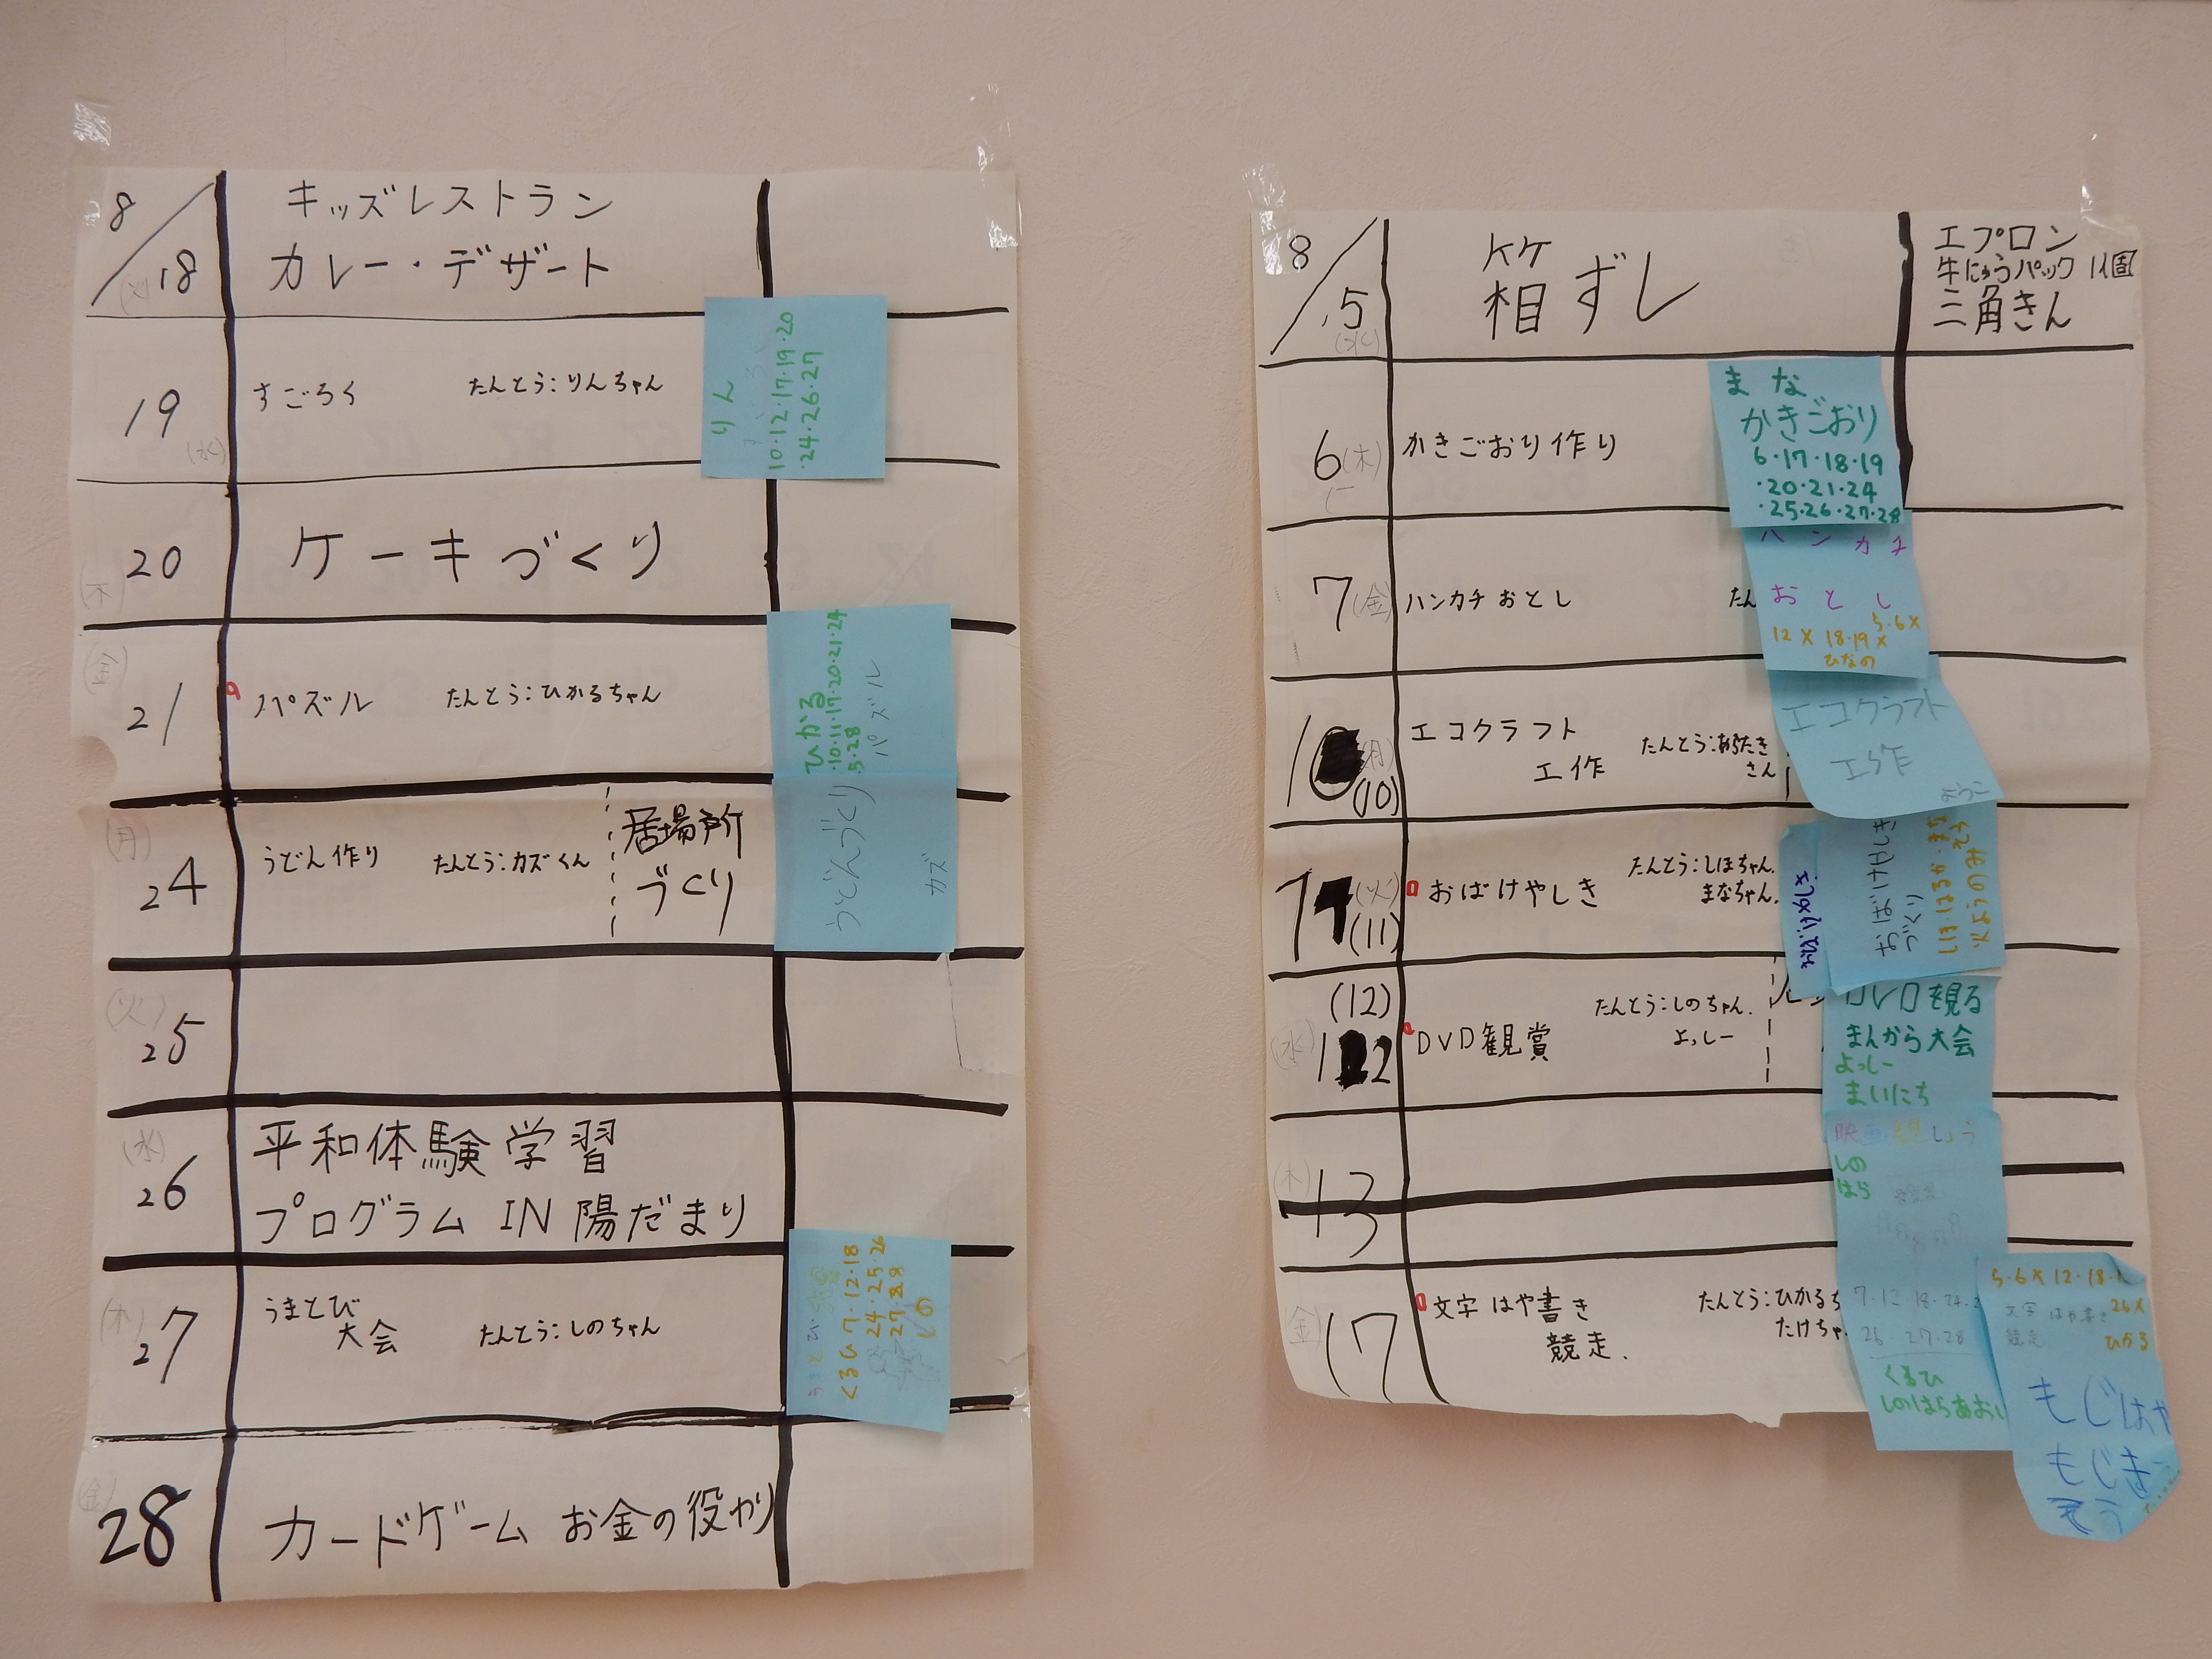 8/18
キッズレストラン
カレー・デザート
19
(水)
すごろく
たんとう:りんちゃん
りん
10・12・17・19・20
・24・26・27
20
(木)
ケーキづくり
(金)
21
パズル
たんとう:ひかるちゃん
ひかる
・10・11・17・20・21・24
5・28
パズル
(月)
24
うどん作り
たんとう:カズくん
居場所
づくり
うどんづくり
カズ
(火)
25
(水)
26
平和体験学習
プログラム IN 陽だまり
(木)
27
うまとび
大会
たんとう:しのちゃん
うまとび大会
くるひ 7・12・18
24・25・26
27・28
しの
(金)
28
カードゲーム お金の役わり
8/5
(水)
箱ずし
エプロン
牛にゅうパック 1個
三角きん
6(木)
かきごおり作り
まな
かきごおり
6・17・18・19
・20・21・24
・25・26・27・28
7(金)
ハンカチおとし
たん
ハンカチ
おとし
5・6×
12×18・19×
ひなの
(月)
(10)
エコクラフト
工作
たんとう:あらたき
さん
エコクラフト
工作
ようこ
(火)
(11)
おばけやしき
たんとう:しほちゃん.
まなちゃん.
おばけやしき
づくり
(12)
(水)
12
DVD観賞
たんとう:しのちゃん.
よっしー
DVDを見る
まんがら大会
よっしー
まいにち
映画観しょう
しの
はら
7・12・18・24・2
26・27・28
くるひ
しのはらあおい
(木)
13
(金)
17
文字はや書き
競走.
たんとう:ひかるち
たけちゃ
5・6×12・18・1
26×
文字はや書き
競走
もじはや
もじき
そう